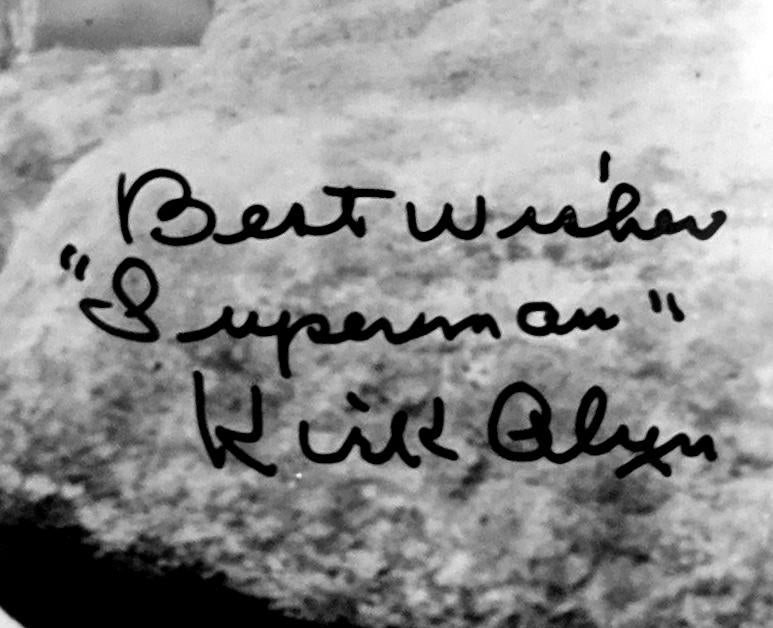 Best Wishes
"Superman"
Kirk Alyn